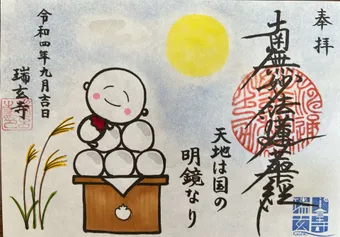 奉拝
南無妙法蓮華経
天地は国の
明鏡なり
令和四年九月吉日
瑞玄寺